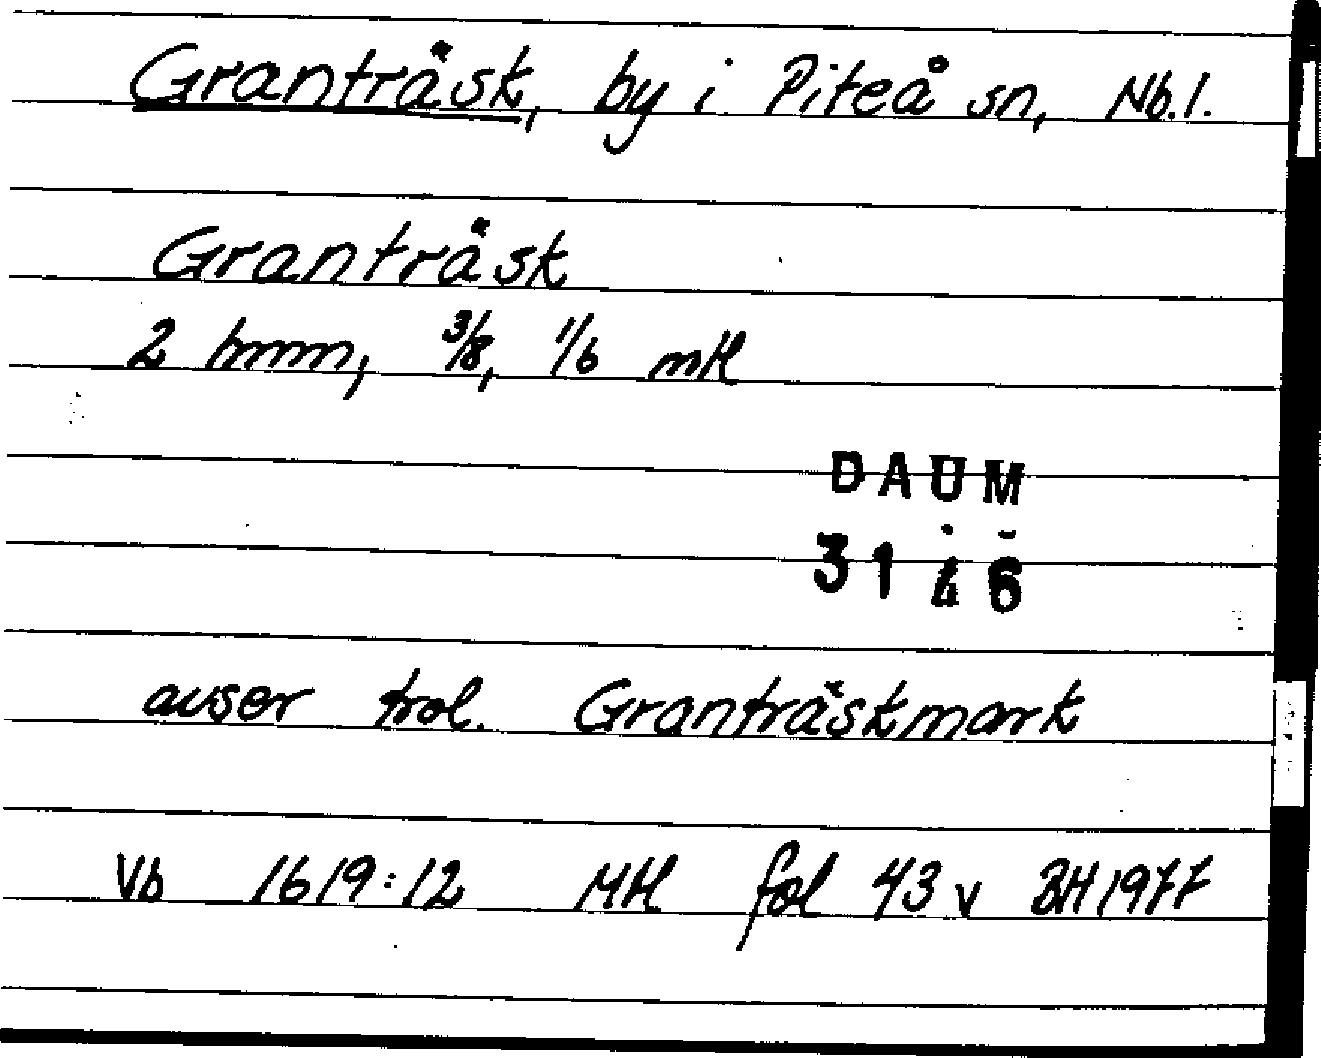 Granträsk, by i Piteå sn, Nb. l.
Granträsk
2 hmm, 3/8, 1/6 mtl
DAUM
3146
avser trol. Granträskmark
Vb 1619:12 Mtl fol 43 v BH 1977